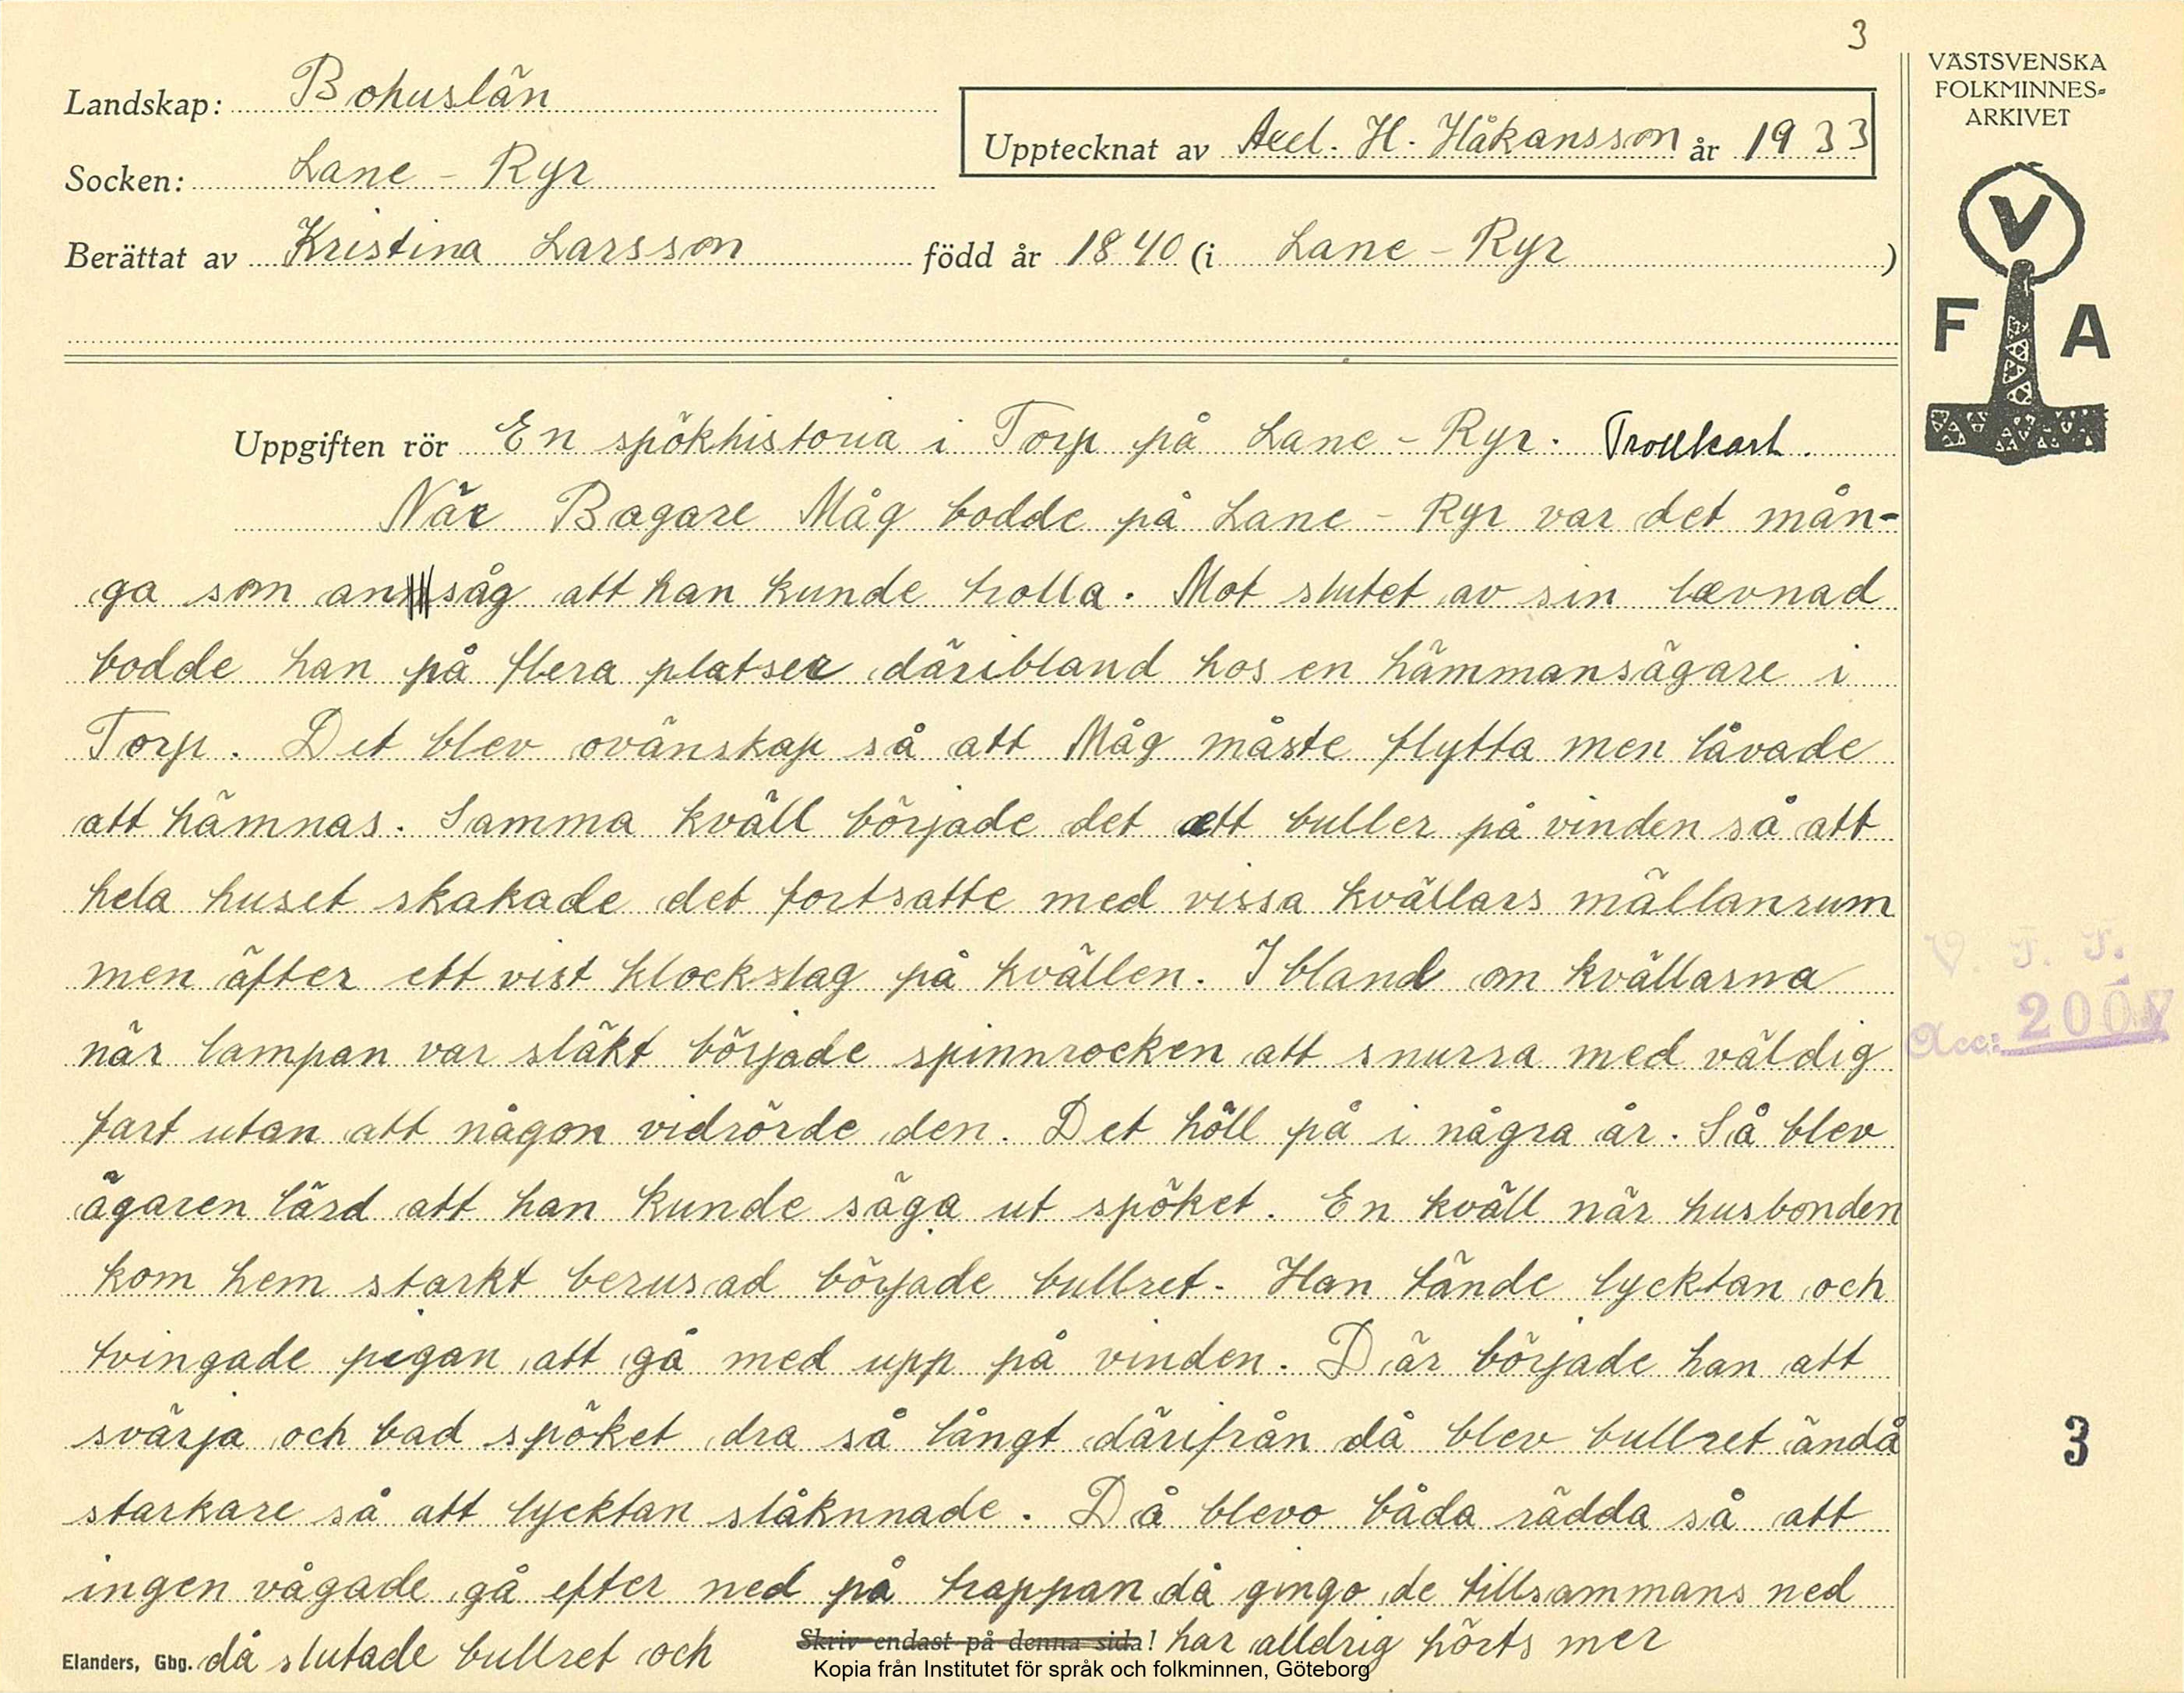 3
VÄSTSVENSKA
FOLKMINNES-
ARKIVET
Landskap: Bohuslän
Upptecknat av Axel. H. Håkansson år 1933
Socken: Lane - Ryr
Berättat av Kristina Larsson född år 1840 (i Lane - Ryr )
V
F A
Uppgiften rör En spökhistoria i Torp på Lane - Ryr. Trollkarl.
När Bagare Måg bodde på Lane - Ryr var det mån-
ga som ansåg att han kunde trolla. Mot slutet av sin lævnad
bodde han på flera platser däribland hos en hämmansägare i
Torp. Det blev ovänskap så att Måg måste flytta men låvade
att hämnas. Samma kväll började det ett buller på vinden så att
hela huset skakade det fortsatte med vissa kvällars mällanrum
men äfter ett vist klockslag på kvällen. I bland om kvällarna
när lampan var släkt började spinnrocken att snurra med väldig
fart utan att någon vidrörde den. Det höll på i några år. Så blev
ägaren lärd att han kunde säga ut spöket. En kväll när husbonden
kom hem starkt berusad började bullret. Han tände lycktan och
tvingade pigan att gå med upp på vinden. Där började han att
svärja och bad spöket dra så långt därifrån då blev bullret ändå
starkare så att lycktan slåknnade. Då blevo båda rädda så att
ingen vågade gå efter ned på trappan då gingo de tillsammans ned
Elanders, Gbg. då slutade bullret och Skriv endast på denna sida! har alldrig hörts mer
Kopia från Institutet för språk och folkminnen, Göteborg
Acc:
3